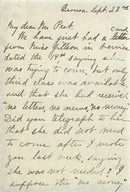 Sept. 23rd
My dear Mr. Peet.
We have just had a letter
from Miss Gillson in
dated the 19th saying she
was trying to come, but only
third class was available
and that she did receive
"no letter, no news, no money."
Did you telegraph to her
that she did not need
to come after I wrote
you last week, saying
she was not needed? I
suppose the "no news,